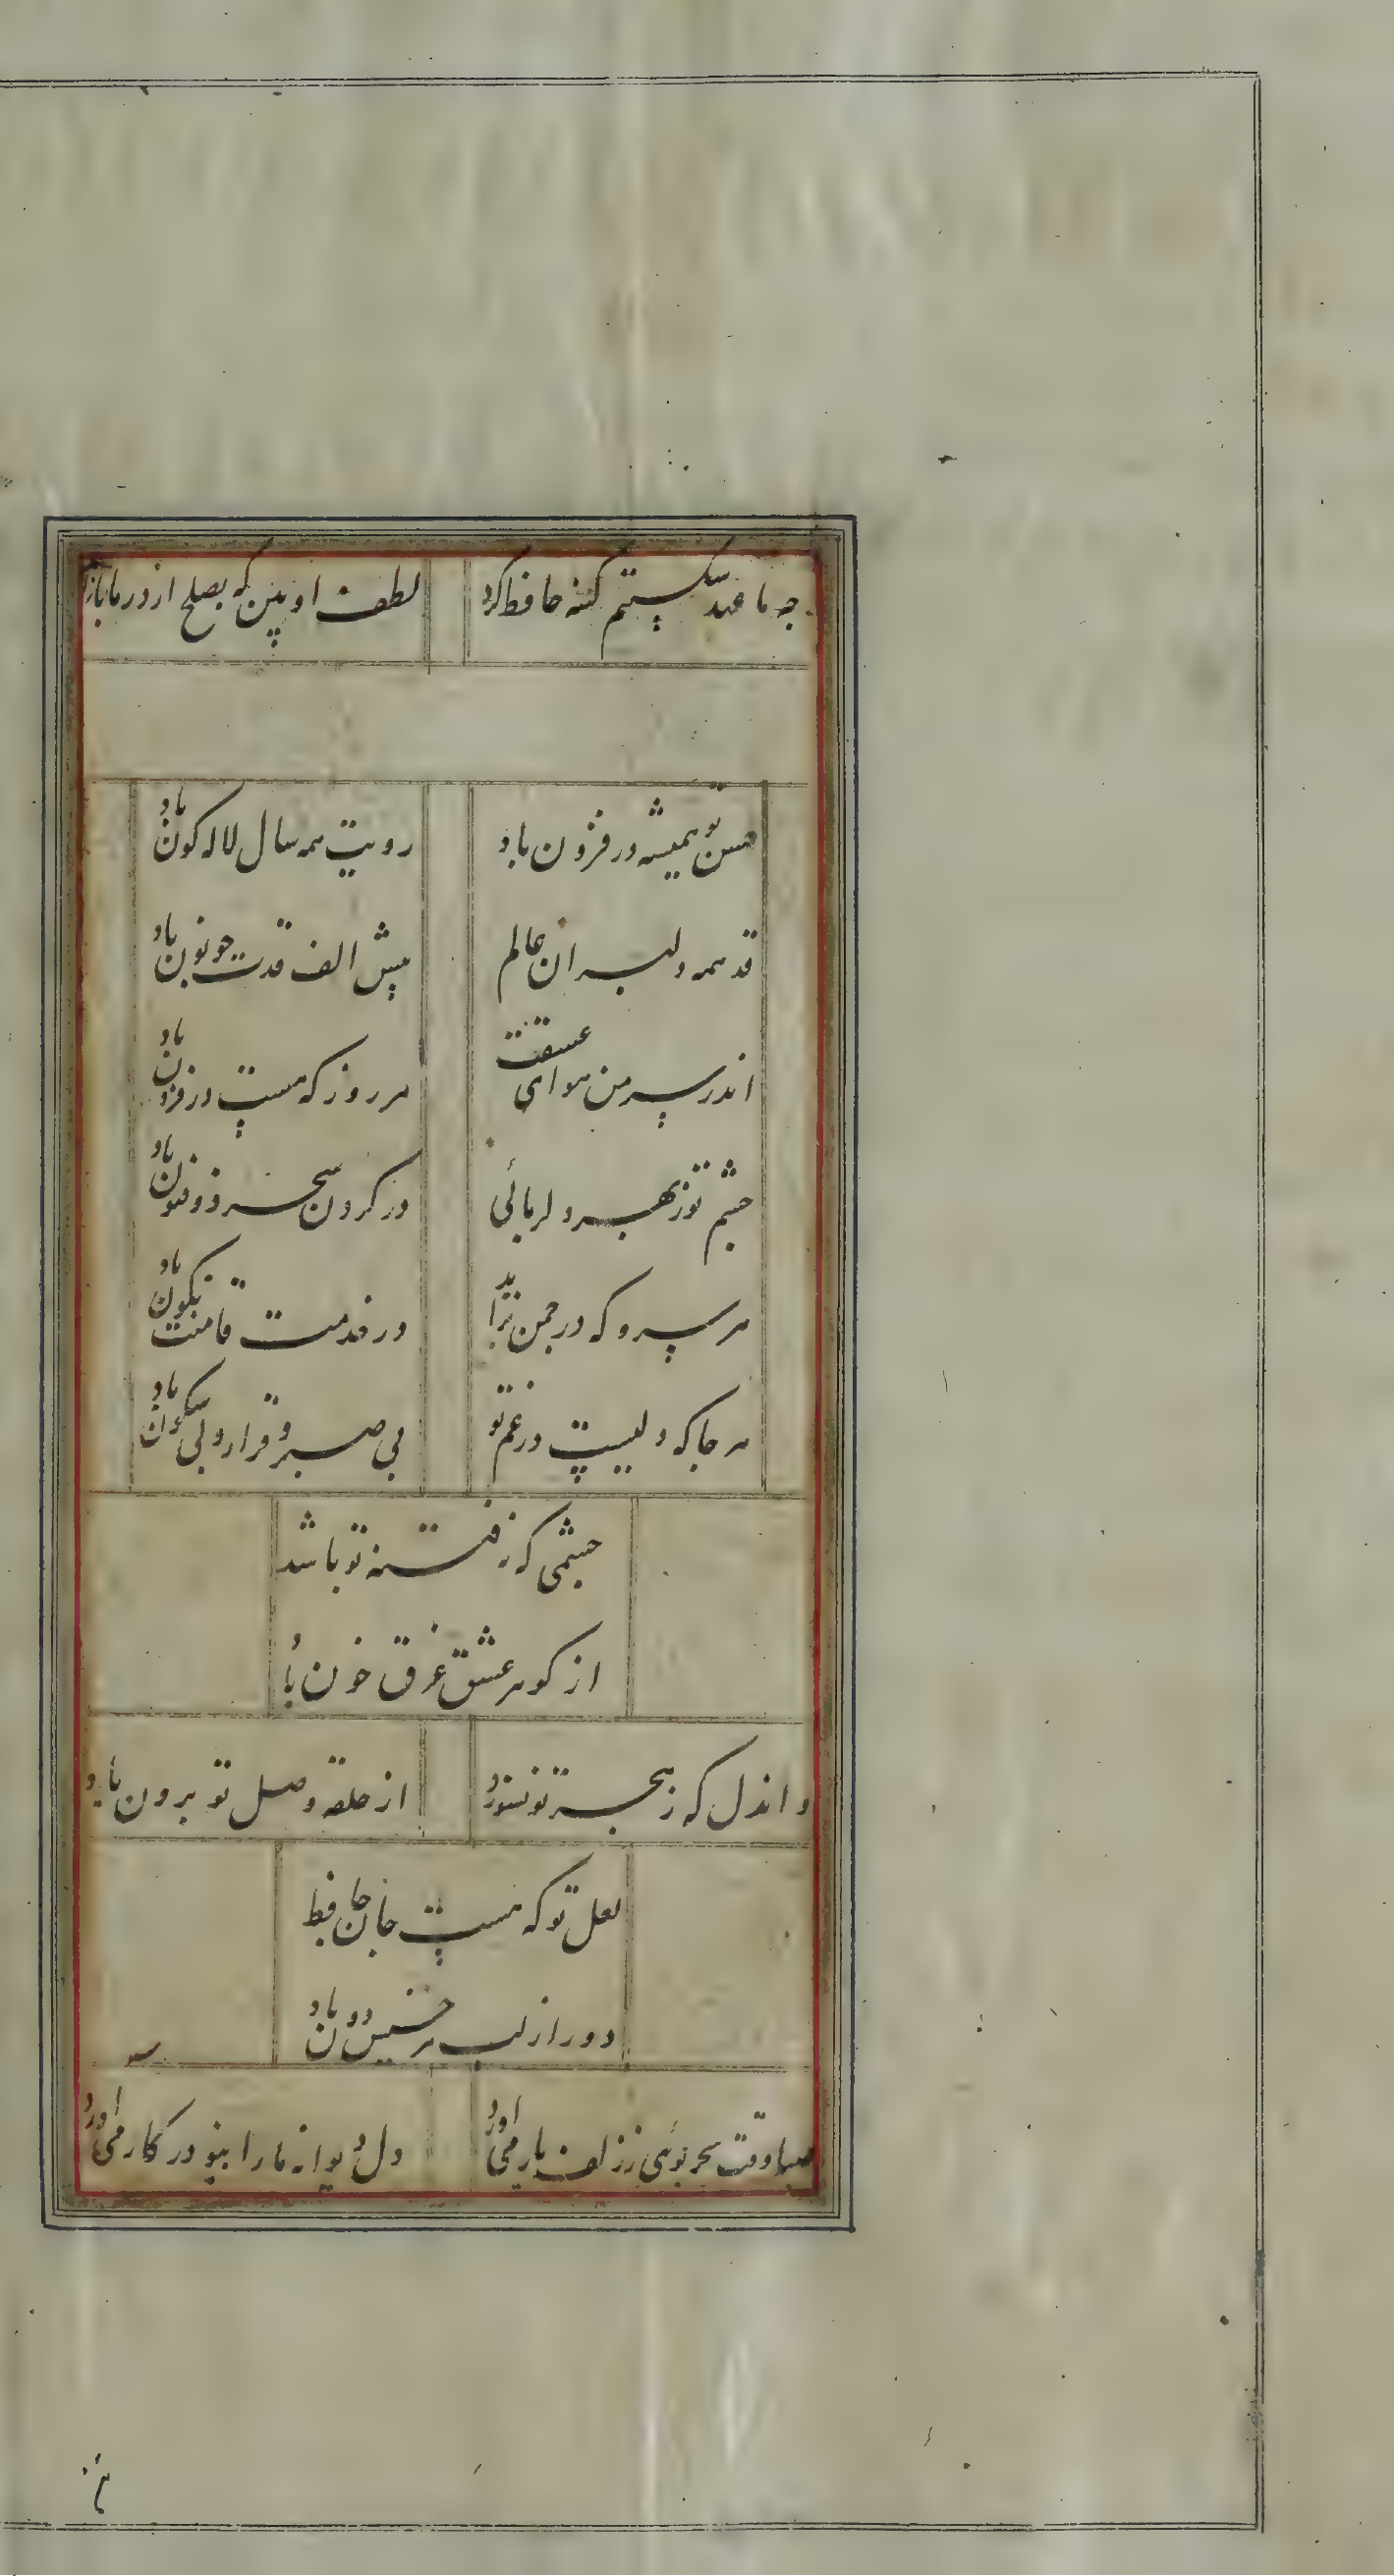 چه ما عهد شکستیم گنه حافظ کرد لطف او بین که بصلح از در ما باز
حسن تو همیشه در فزون باد رویت همه سال لاله کون باد
قد همه دلبران عالم پیش الف قدت چو نون باد
اندر سر من هوای عشقت هر روز که هست در فزون باد
چشم تو ز بهر دلربائی در کردن سحر ذوفنون باد
هر سرو که در چمن برآید در خدمت قامتت نکون باد
هر جا که دلیست در غم تو بی صبر و قرار و بی سکون باد
چشمی که نه فتنه تو باشد
از کوهر عشق غرق خون با
واندل که ز هجر تو نسوزد از حلقه وصل تو برون باد
لعل تو که هست جان حافظ
دور از لب هر خسیس دون باد
صبا وقت سحر بوئی ز زلف یار می اورد دل دیوانه ما را بنو در کار می اورد